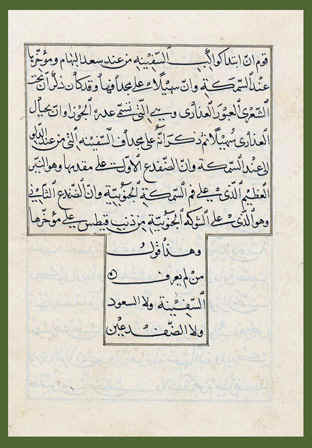 قوم ان ابتدا كواكب السفينه من عند سعد البهام ومؤخرها
عند السمكة وان سهيلا على مجدافها وقد كان ذكر ان تحت
الشعرى العبور العذارى وهي التي تسمى عذرة الجوزا وان بحيال
العذارى سهيلا ثم ذكر انه على مجداف السفينه التي من عند الدلو
الى عند السمكة وان الضفدع الاول على مقدمها وهو النير
العظيم الذى على فم السمكة الجنوبية وان الضفدع الثاني
وهو الذى على الشوكة الجنوبية من ذنب قيطس على مؤخرها
وهذا قول
من لم يعرف
السفينة ولا السعود
ولا الضفدعين